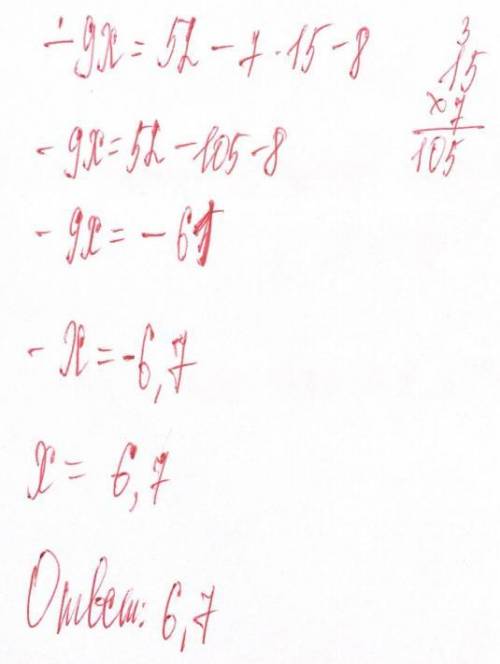 - 9x = 52 - 7 · 15 - 8
3
15
× 7
105
- 9x = 52 - 105 - 8
- 9x = - 61
- x = -6,7
x = 6,7
Ответ: 6,7